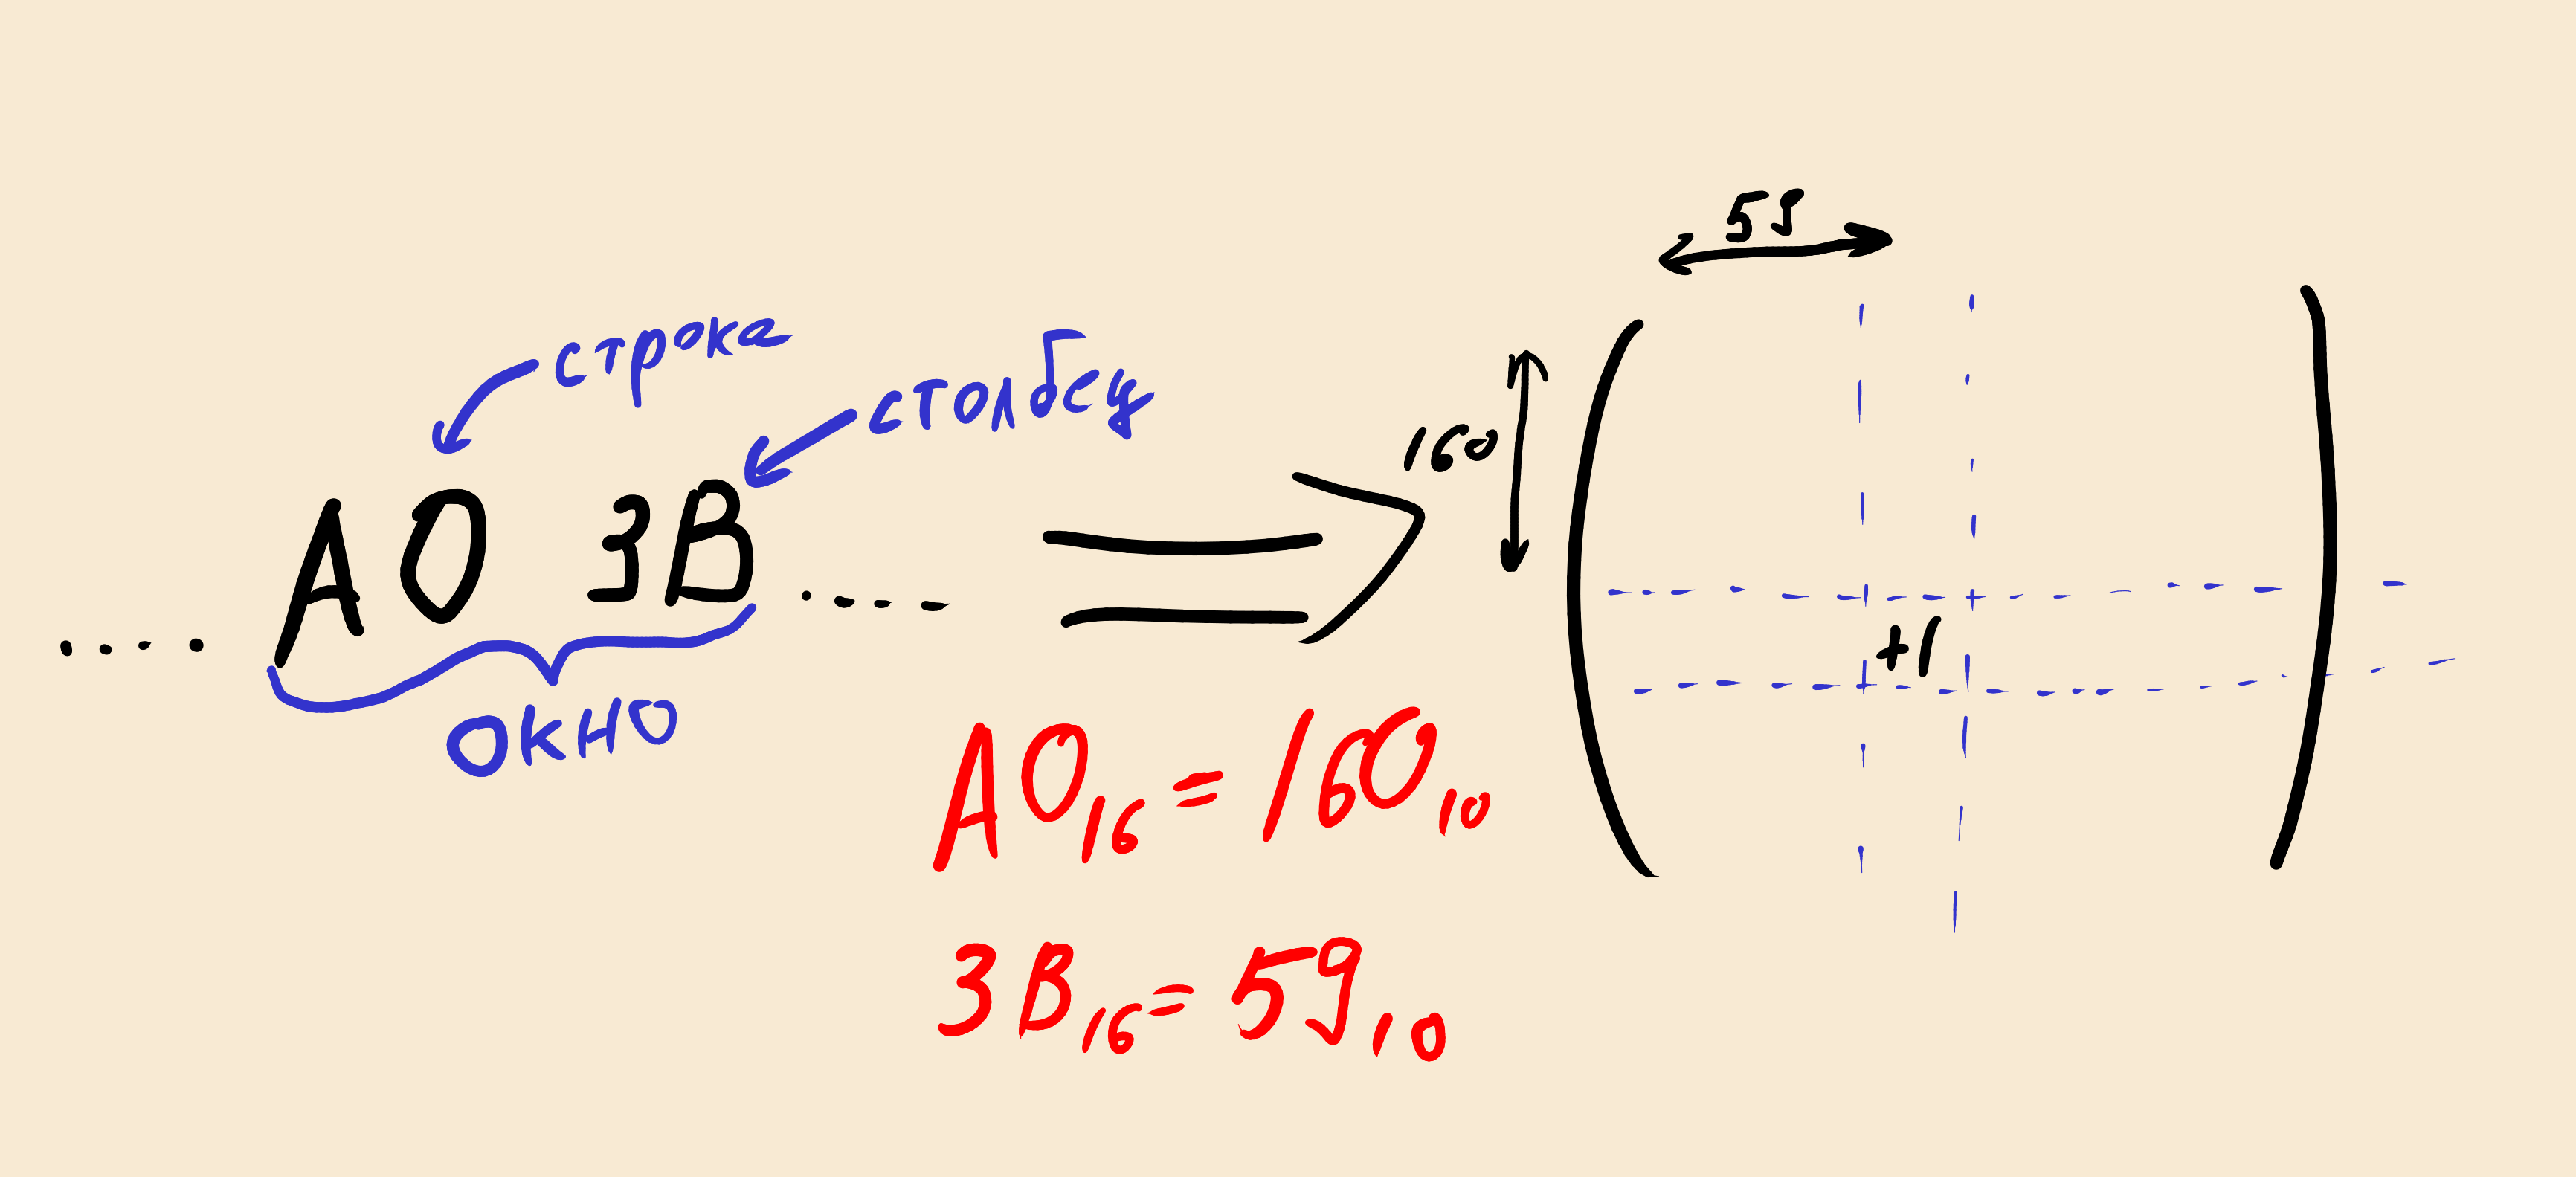 строка
столбец
.... A0 3B ....
окно
59
160
+1
A0₁₆ = 160₁₀
3B₁₆ = 59₁₀